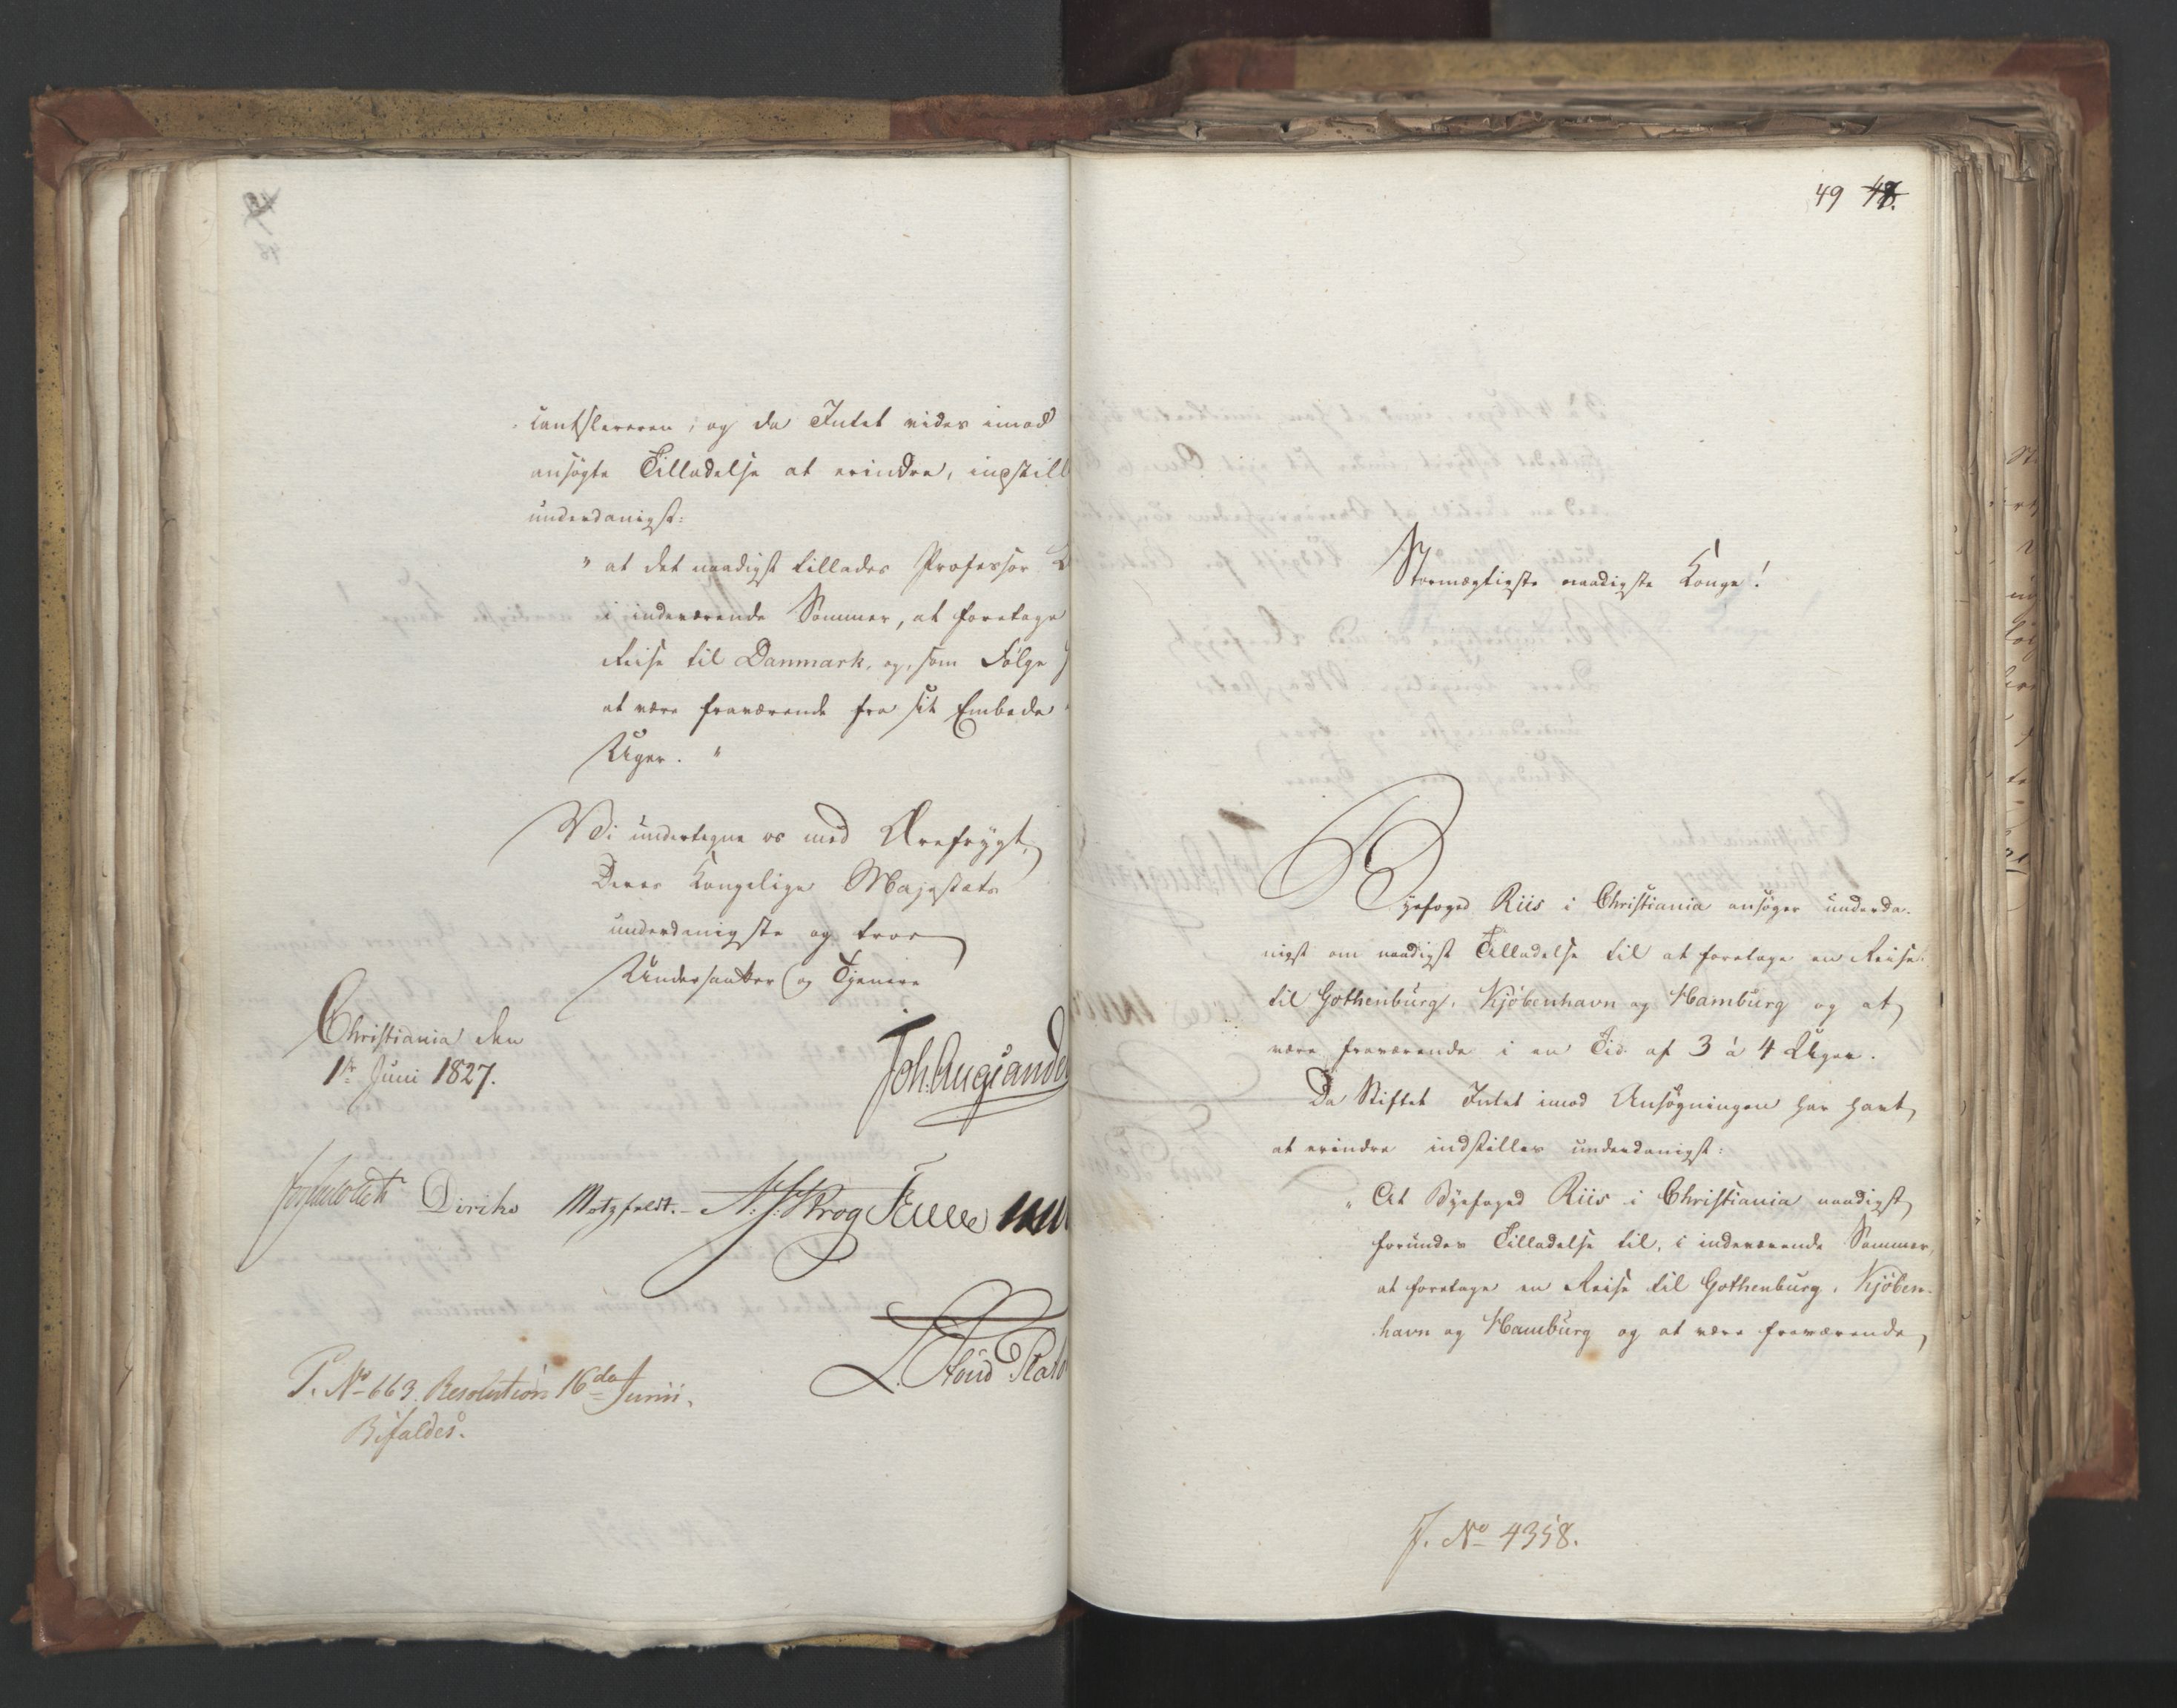 cantsleren; og da Intet vides imod
ansøgte Tilladelse at erindre, inpstill
underdanigst:
" at det naadigst tillades Professor
i indeværende Sommer, at foretage
Reise til Danmark, og, som Følge
at være fraværende fra sit Embede
Uger. "
Vi undertegne os med Ærefrygt,
Deres Kongelige Majestæts
underdanigste og troe
Undersaatter og Tjenere
Christiania den
1te Juni 1827.
Joh. Aug. Sande
Diriks Motzfeldt. N. J. Krog
P. No 663. Resolution 16de Junii.
Bifaldes.
49 48.
Stormægtigste naadigste Konge!
Byefoged Riis i Christiania ansøger underda-
nigst om naadigst Tilladelse til at foretage en Reise
til Gothenburg, Kjøbenhavn og Hamburg og at
være fraværende i en Tid af 3 à 4 Uger.
Da Stiftet Intet imod Ansøgningen har havt
at erindre indstilles underdanigst:
" At Byefoged Riis i Christiania naadigst
forundes Tilladelse til, i indeværende Sommer,
at foretage en Reise til Gothenburg, Kjøben-
havn og Hamburg og at være fraværende
J. No 4358.